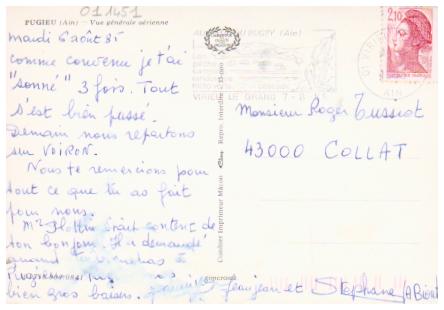 011451
PUGIEU (Ain) - Vue générale aérienne
mardi 6 août 85
comme convenu je t'ai
"sonné" 3 fois. Tout
s'est bien passé.
Demain nous repartons
sur VOIRON.
Nous te remercions pour
tout ce que tu as fait
pour nous.
était content de
ton bonjour. Il a demandé
quand
bien gros baisers.
jeanjean et Stephane
A Bientôt
Combier Imprimeur Mâcon
Repro. Interdite
BUGEY (Ain)
VIRIEU LE GRAND
2,10
AIN
Monsieur Roger Tussiot
43000 COLLAT